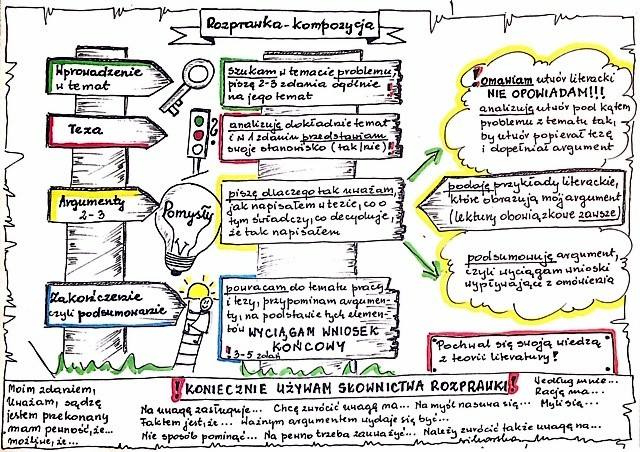 Rozprawka - kompozycja
Wprowadzenie
w temat
szukam w temacie problemu,
piszę 2-3 zdania ogólnie
na jego temat
Teza
analizuję dokładnie temat
i w 1 zdaniu przedstawiam
swoje stanowisko (tak/nie)
Argumenty
2-3
Pomysły
piszę dlaczego tak uważam,
jak napisałem w tezie, co o
tym świadczy, co decyduje,
że tak napisałem
Zakończenie
czyli podsumowanie
powracam do tematu pracy
i tezy, przypominam argumen-
ty, na podstawie tych elemen-
tów
WYCIĄGAM WNIOSEK
KOŃCOWY
! 3-5 zdań
! Omawiam utwór literacki
NIE OPOWIADAM!!!
analizuję utwór pod kątem
problemu z tematu tak,
by utwór popierał tezę
i dopełniał argument
podaję przykłady literackie,
które obrazują mój argument
(lektury obowiązkowe zawsze)
podsumowuję argument,
czyli wyciągam wnioski
wypływające z omówienia
Pochwal się swoją wiedzą
z teorii literatury!
! KONIECZNIE UŻYWAM SŁOWNICTWA ROZPRAWKI !
Moim zdaniem,
Uważam, sądzę
jestem przekonany
mam pewność, że...
możliwe, że...
Na uwagę zasługuje... Chcę zwrócić uwagę na... Na myśl nasuwa się...
Faktem jest, że... Ważnym argumentem wydaje się być...
Nie sposób pominąć... Na pewno trzeba zauważyć... Należy zwrócić także uwagę na...
Według mnie...
Rację ma...
Myślę...